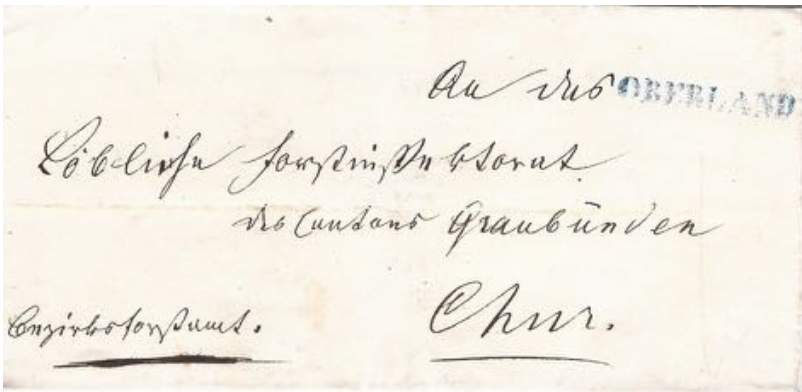 An das OBERLAND
Löbliche Forstinspektorat
des Cantons Graubünden
Chur.
Bezirksforstamt.